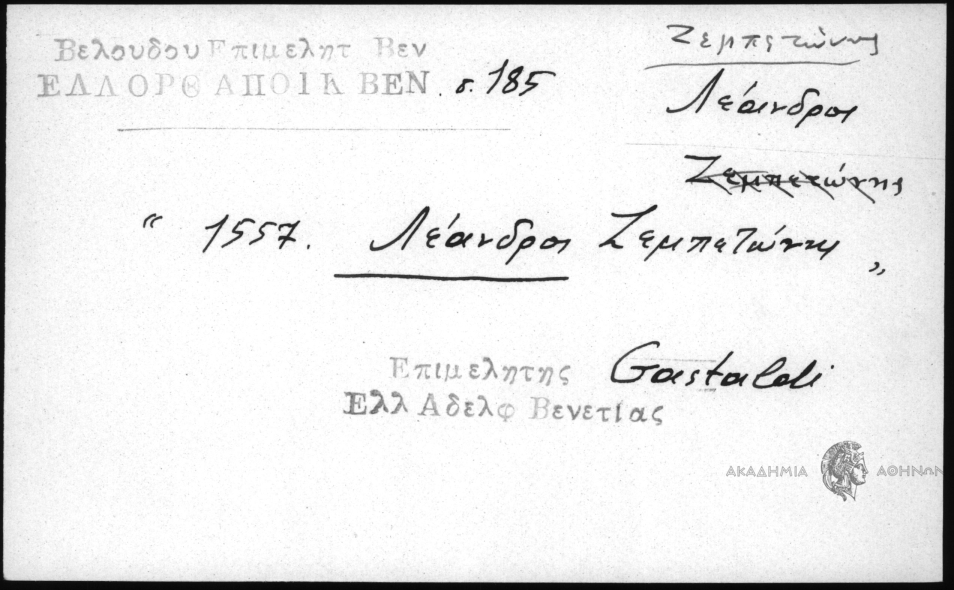 Ζεμπετώνης
Βελουδου Επιμελητ Βεν
ΕΛΛΟΡΘ ΑΠΟΙΚ ΒΕΝ. σ. 185
Λέανδρος
Ζεμπετώνης
" 1557. Λέανδρος Ζεμπετώνης "
Επιμελητης Gastaldi
Ελλ Αδελφ Βενετιας
ΑΚΑΔΗΜΙΑ ΑΘΗΝΩΝ